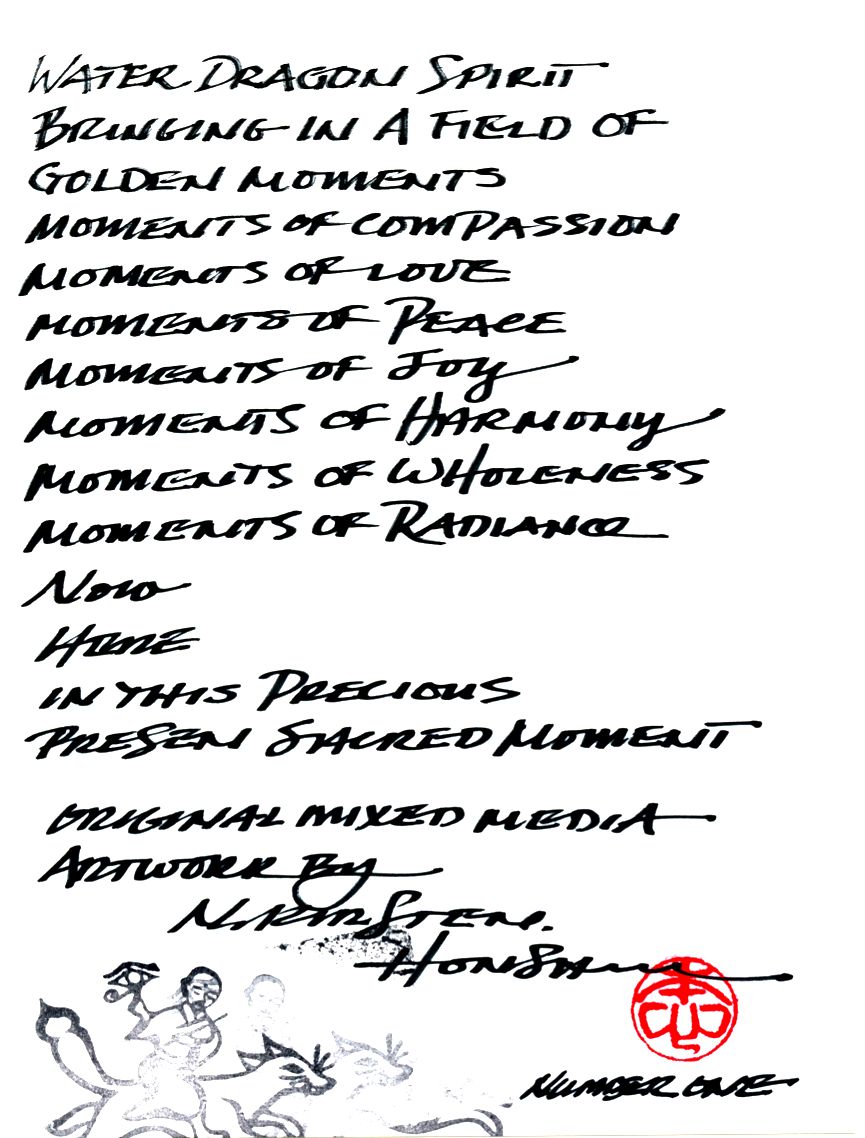 WATER DRAGON SPIRIT
BRINGING IN A FIELD OF
GOLDEN MOMENTS
MOMENTS OF COMPASSION
MOMENTS OF LOVE
MOMENTS OF PEACE
MOMENTS OF JOY
MOMENTS OF HARMONY
MOMENTS OF WHOLENESS
MOMENTS OF RADIANCE
NOW
HERE
IN THIS PRECIOUS
PRESEN SACRED MOMENT
ORIGINAL MIXED MEDIA
ARTWORK BY
HONSHIN
NUMBER ONE